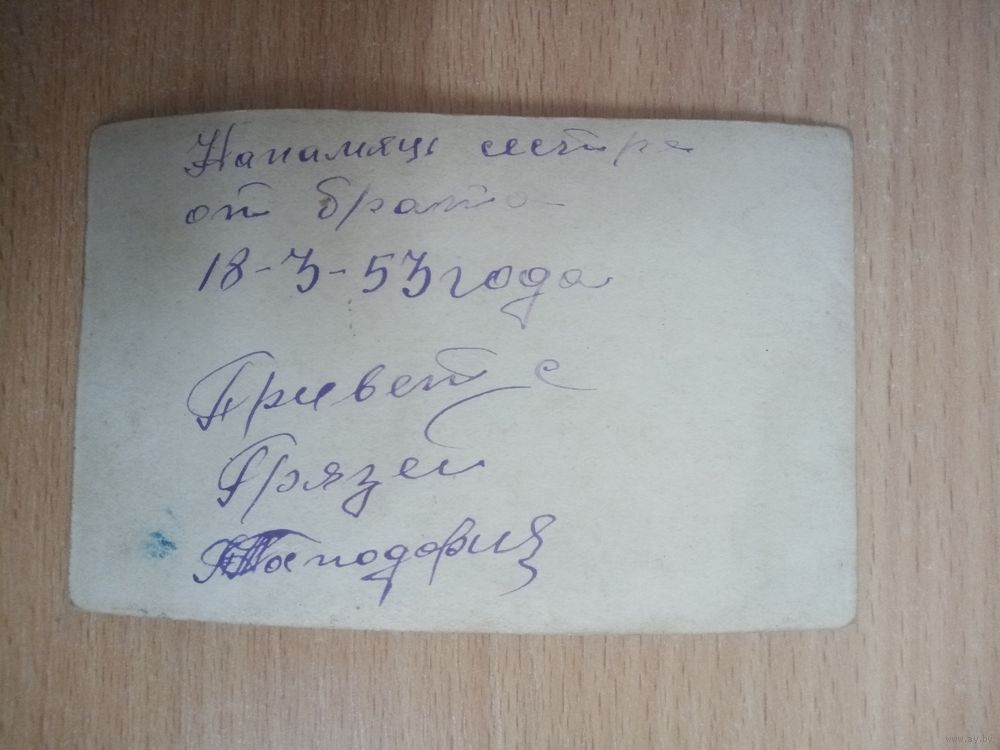 Напамяць сестре
от брата
18-3-53 года
Привет с
Грязей
www.ay.by